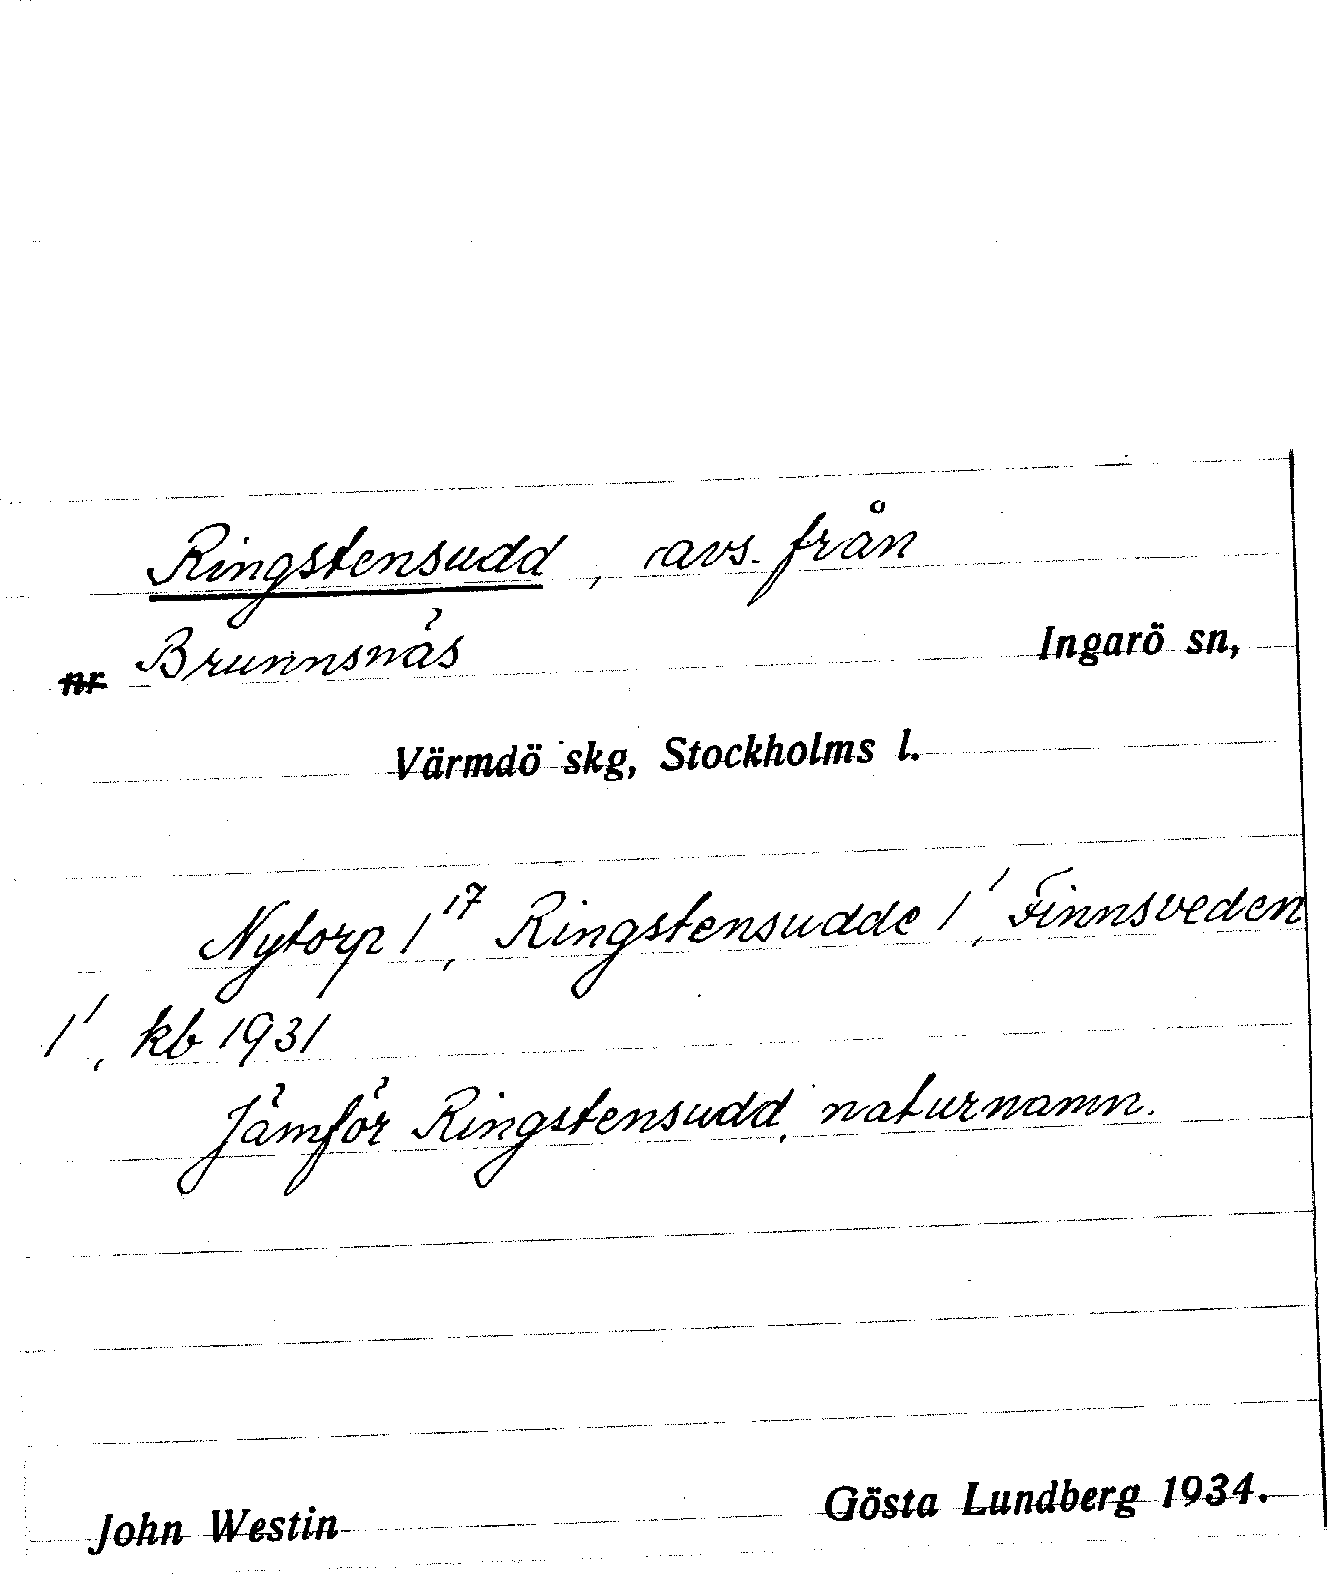 Ringstensudd, avs. från
nr Brunnsnäs Ingarö sn,
Värmdö skg, Stockholms l.
Nytorp 1¹⁷, Ringstensudde 1¹, Finnsveden
1¹, kb 1931
Jämför Ringstensudd, naturnamn.
John Westin Gösta Lundberg 1934.